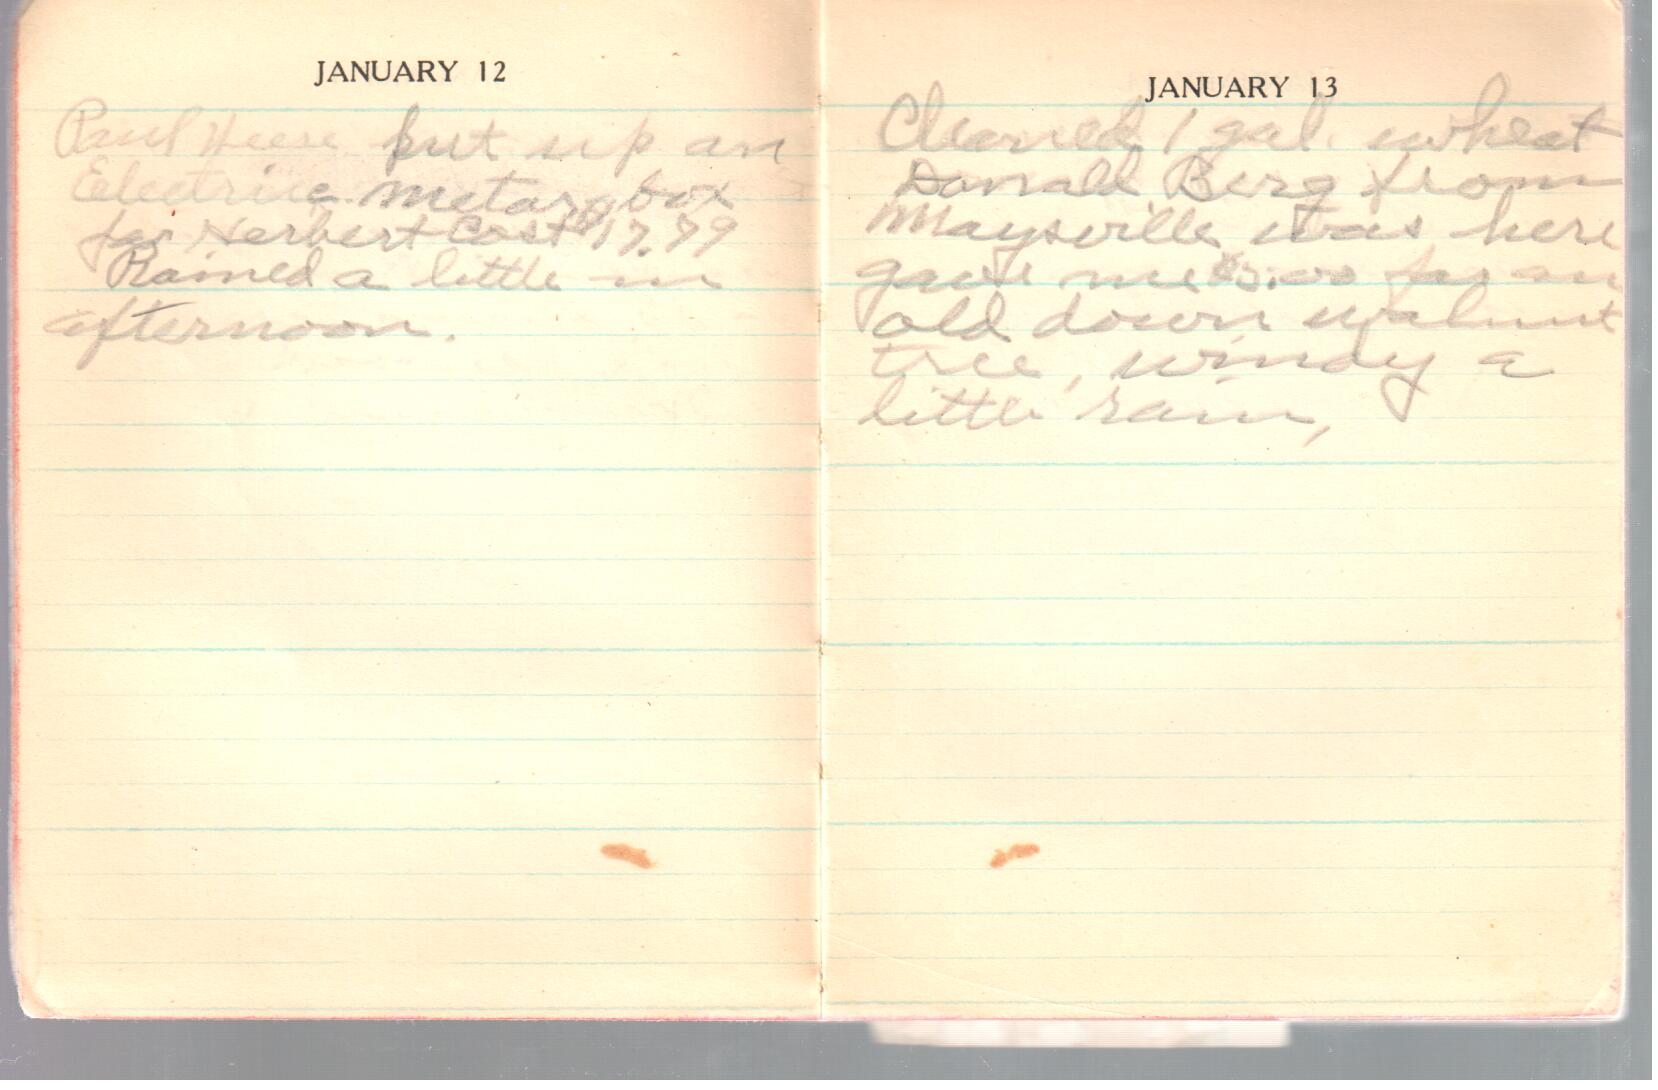 JANUARY 12
Paul Heese put up an
Electric metar box
for Herbert Cost $17.79
Rained a little in
afternoon.
JANUARY 13
Cleaned 1 gal. wheat
Donald Berg from
Maysville was here
gave me $5.00 for an
old down walnut
tree, windy a
little rain,